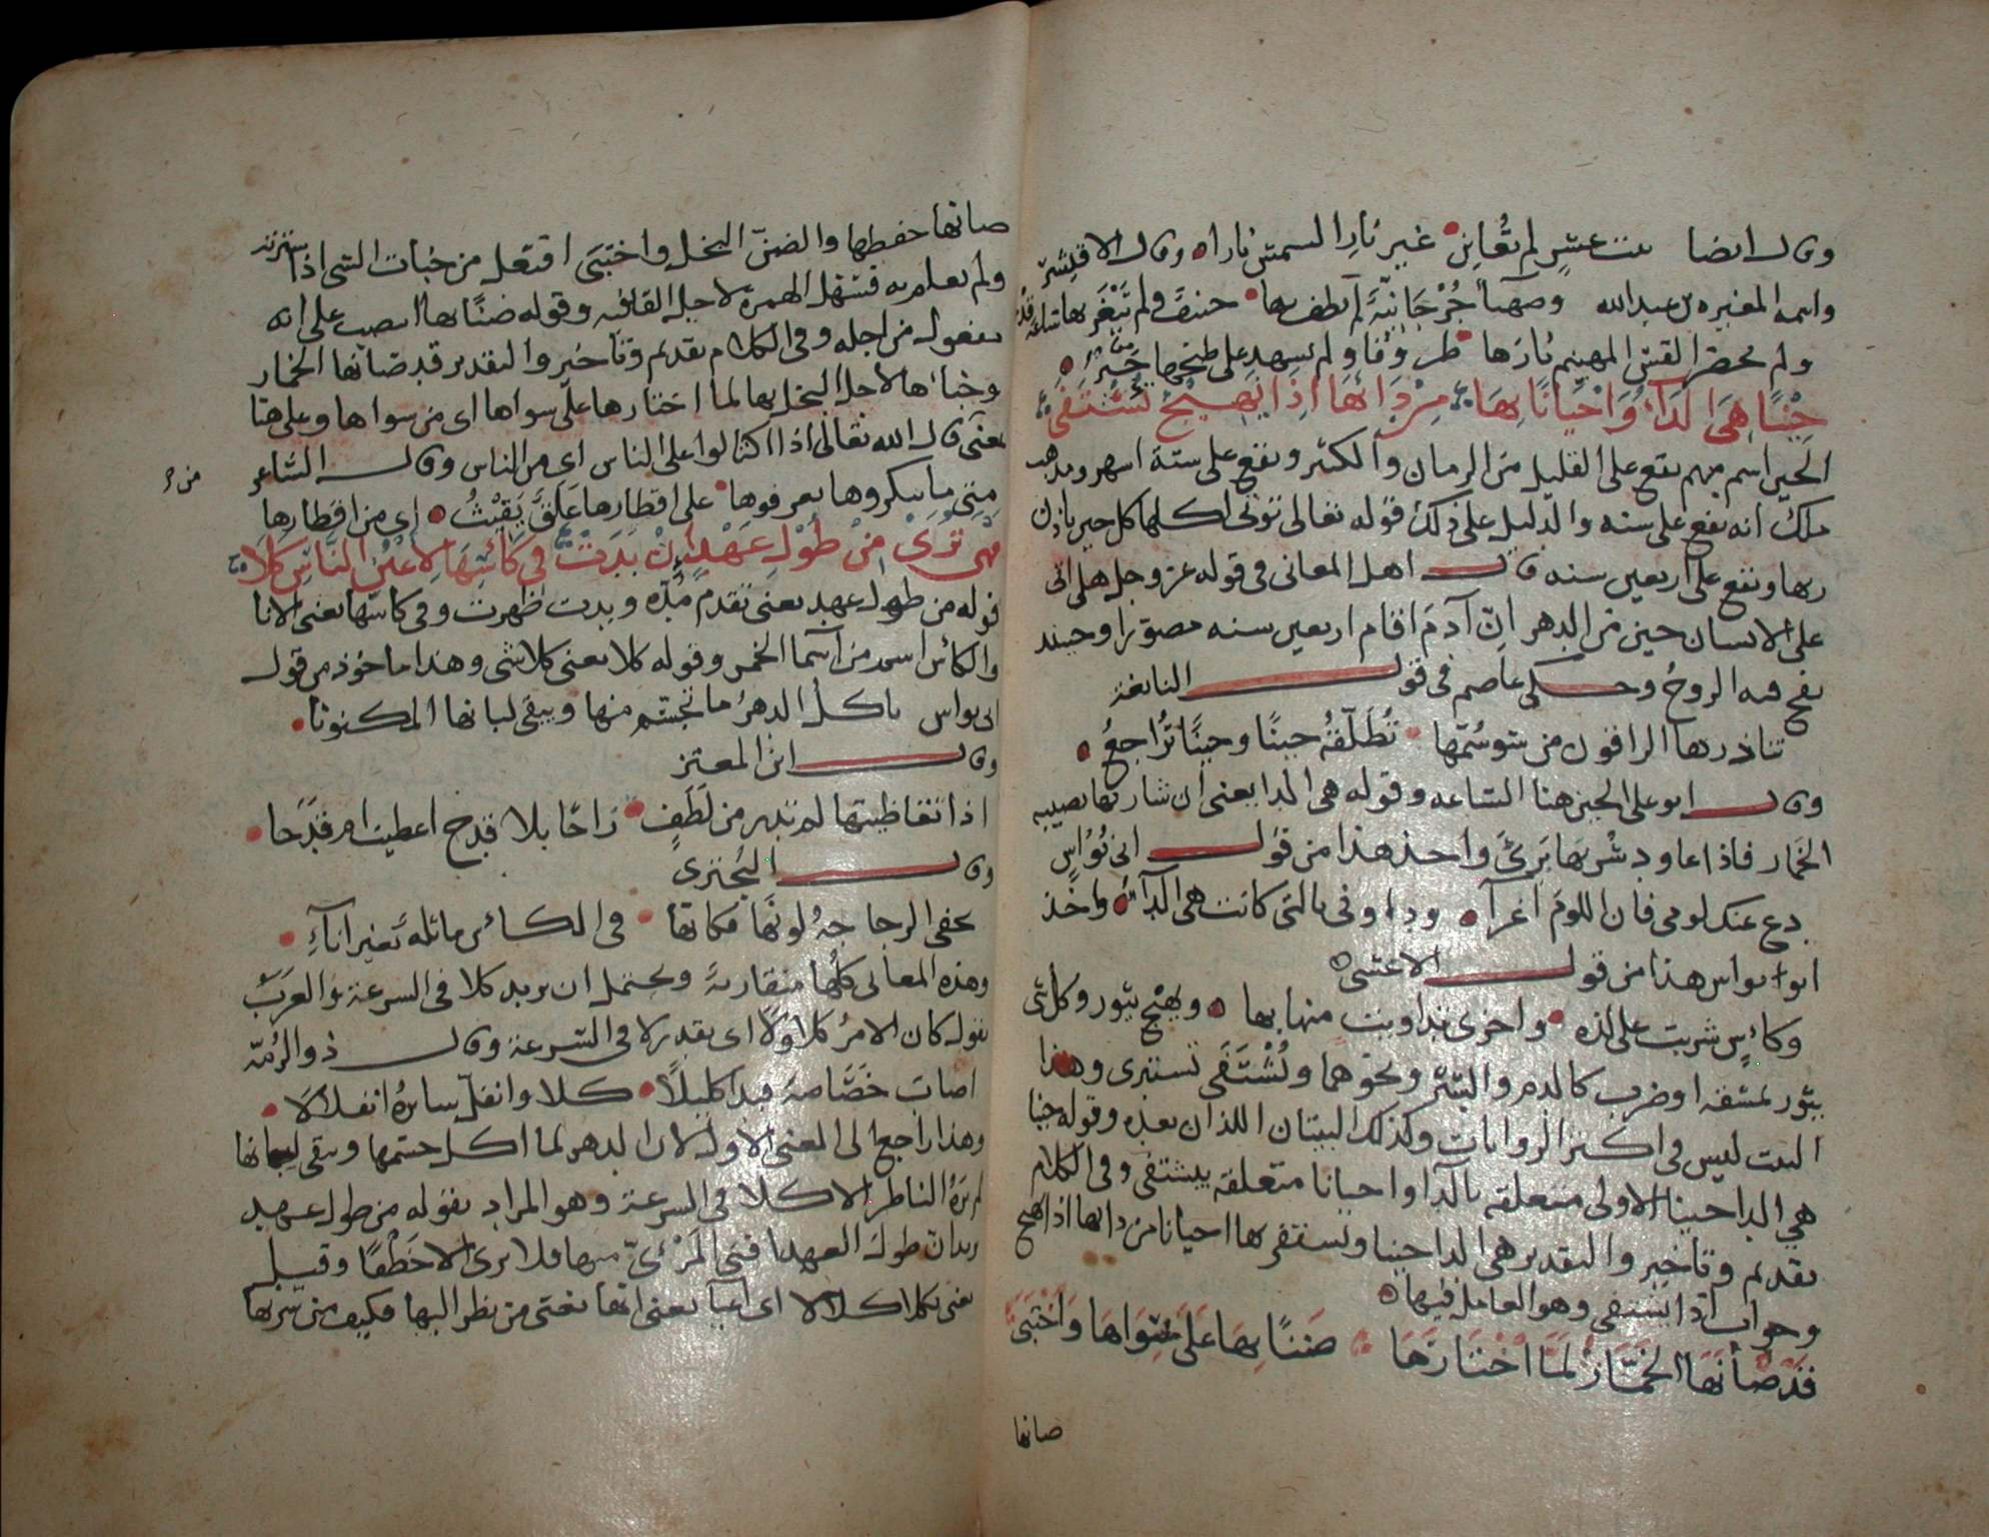 وقال ايضا بنت عشر لم تعاين غير نار السمس نارا وقال الاقيشر
واسمه المغيره بن عبد الله وصهبا جُرْجَانيّة لم يطف بها حنيف ولم تَنْغَر بها ساعة قدر
ولم يحضر القس المهينم نارها طروقا ولم يشهد على طبخها حَبْر
حِيْنًا هِيَ الدَاءُ وَاَحْيَانًا بِهَا مِنْ دَائهَا اِذَا يَهِيْجُ يُشْتَفَى
الحين اسم مبهم يقع على القليل من الزمان والكثير ويقع على ستة اشهر ومذهب
ملك انه يقع على سنه والدليل على ذلك قوله تعالى تؤتى اكلها كل حين باذن
ربها ويقع على اربعين سنه قال اهل المعانى فى قوله عز وجل هل اتى
على الانسان حين من الدهر انّ آدمَ اقام اربعين سنه مصورا وحيند
نفخ فيه الروحُ وحكى عاصم فى قول النابغة
تناذرها الراقون من سوسُمّها تُطَلّقهُ حينًا وحينًا تُراجعُ
وقال ابو على الحين هنا الساعه وقوله هى الدا يعنى ان شاربها يصيبه
الخمار فاذا عاود شُرْبهَا بَرِىَٔ واخذ هذا من قول ابى نُوَاس
دع عنك لومى فان اللومَ اغرآ وداونى بالتى كانت هى الدآ واخذ
ابو نواس هذا من قول الاعشى
وكأسٍ شربت على لذه واخرى تداويت منها بها ويهيْج يثور وكل شى
يثور لمشقه او ضرب كالدم والبثر ونحوهما ويُشْتَفَى تستبرى وهذا
البيت ليس فى اكثر الروايات وكذلك البيتان اللذان بعده وقوله حينا
هي الدا حينا الاولى متعلقه بالدا واحيانا متعلقه بيشتفى وفى الكلام
تقديم وتاخير والتقدير هى الدا حينا ويستفى بها احيانا من دائها اذا يهيج
وجواب اذا يشتفى وهو العامل فيها
قَدْ صَانَهَا الخَمَّارُ لَمَا اخْتَارَهَا ضَنًا بِهَا عَلَى سِوَاهَا وَاخْتَبَى
صانها
صانها حفظها والضنّ البخل واختبَى افتعل من خبات الشى اذا سترته
ولم يعلم به فسهل الهمزة لاجل القافيه وقوله ضنًا بها انتصب على انه
مفعول من اجله وفى الكلام تقديم وتاخير والتقدير قد صانها الخمار
وخبأها لاجل البخل بها لما اختارها على سواها اى من سواها وعلى هنا
بمعنى قال الله تعالى اذا اكتالوا على الناس اى من الناس وقال الشاعر
من
متى ما ينكروها يعرفوها على اقطارها عَلَق يَقِيْثُ اى من اقطارها
فهى تُرَى مِنْ طُوْلِ عَهْدٍ اِنْ بَدَتْ فى كَأسِهَا لِاَعْيُنِ النَّاسِ كَلَا
قوله من طول عهد يعنى تقدم مُدّه وبدت ظهرت وفى كاسها يعنى الانا
والكأس اسم من اسما الخمر وقوله كلا يعنى كلا شى وهذا ماخوذ من قول
ابى نواس ياكل الدهرُ ما تجسّم منها ويبقى لبابها المكنونا
وقال ابن المعتز
اذا تعاطيتها لم تدر من لَطَفٍ رَاحًا بلا قدح اعطيت ام قَدَحَا
وقال البُحْتُرى
يخفى الزجاجةُ لونُهَا فكانها فى الكأس مائلةً بغير اناءِ
وهذه المعانى كلُها متقاربةً ويحتمل ان يريد كلا فى السرعة والعربُ
تقول كان الامرُ كلا ولَا اى بقدر لا فى السرعة وقال ذو الرُمّة
اصاب خَصَاصةً فبدا كليلًا كلا وانغلّ سايرهُ انغلالَا
وهذا راجع الى المعنى الاول لان الدهر لما اكل جسمها وبقى لبابها
لم يرَهُ الناظر الا كلا فى السرعة وهو المراد بقوله من طول عهد
يريد ان طولَ العهد افنى المَرْئىّ منها فلا يرى الا خَطْفًا وقيل
يعنى بكلا كلالا اى اعيآ يعنى انها تعشى من نظر اليها فكيف من شربها